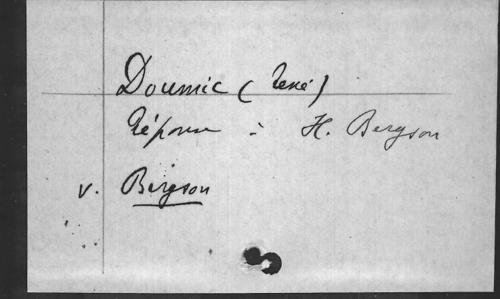 Doumic (René)
Réponse à H. Bergson
v. Bergson